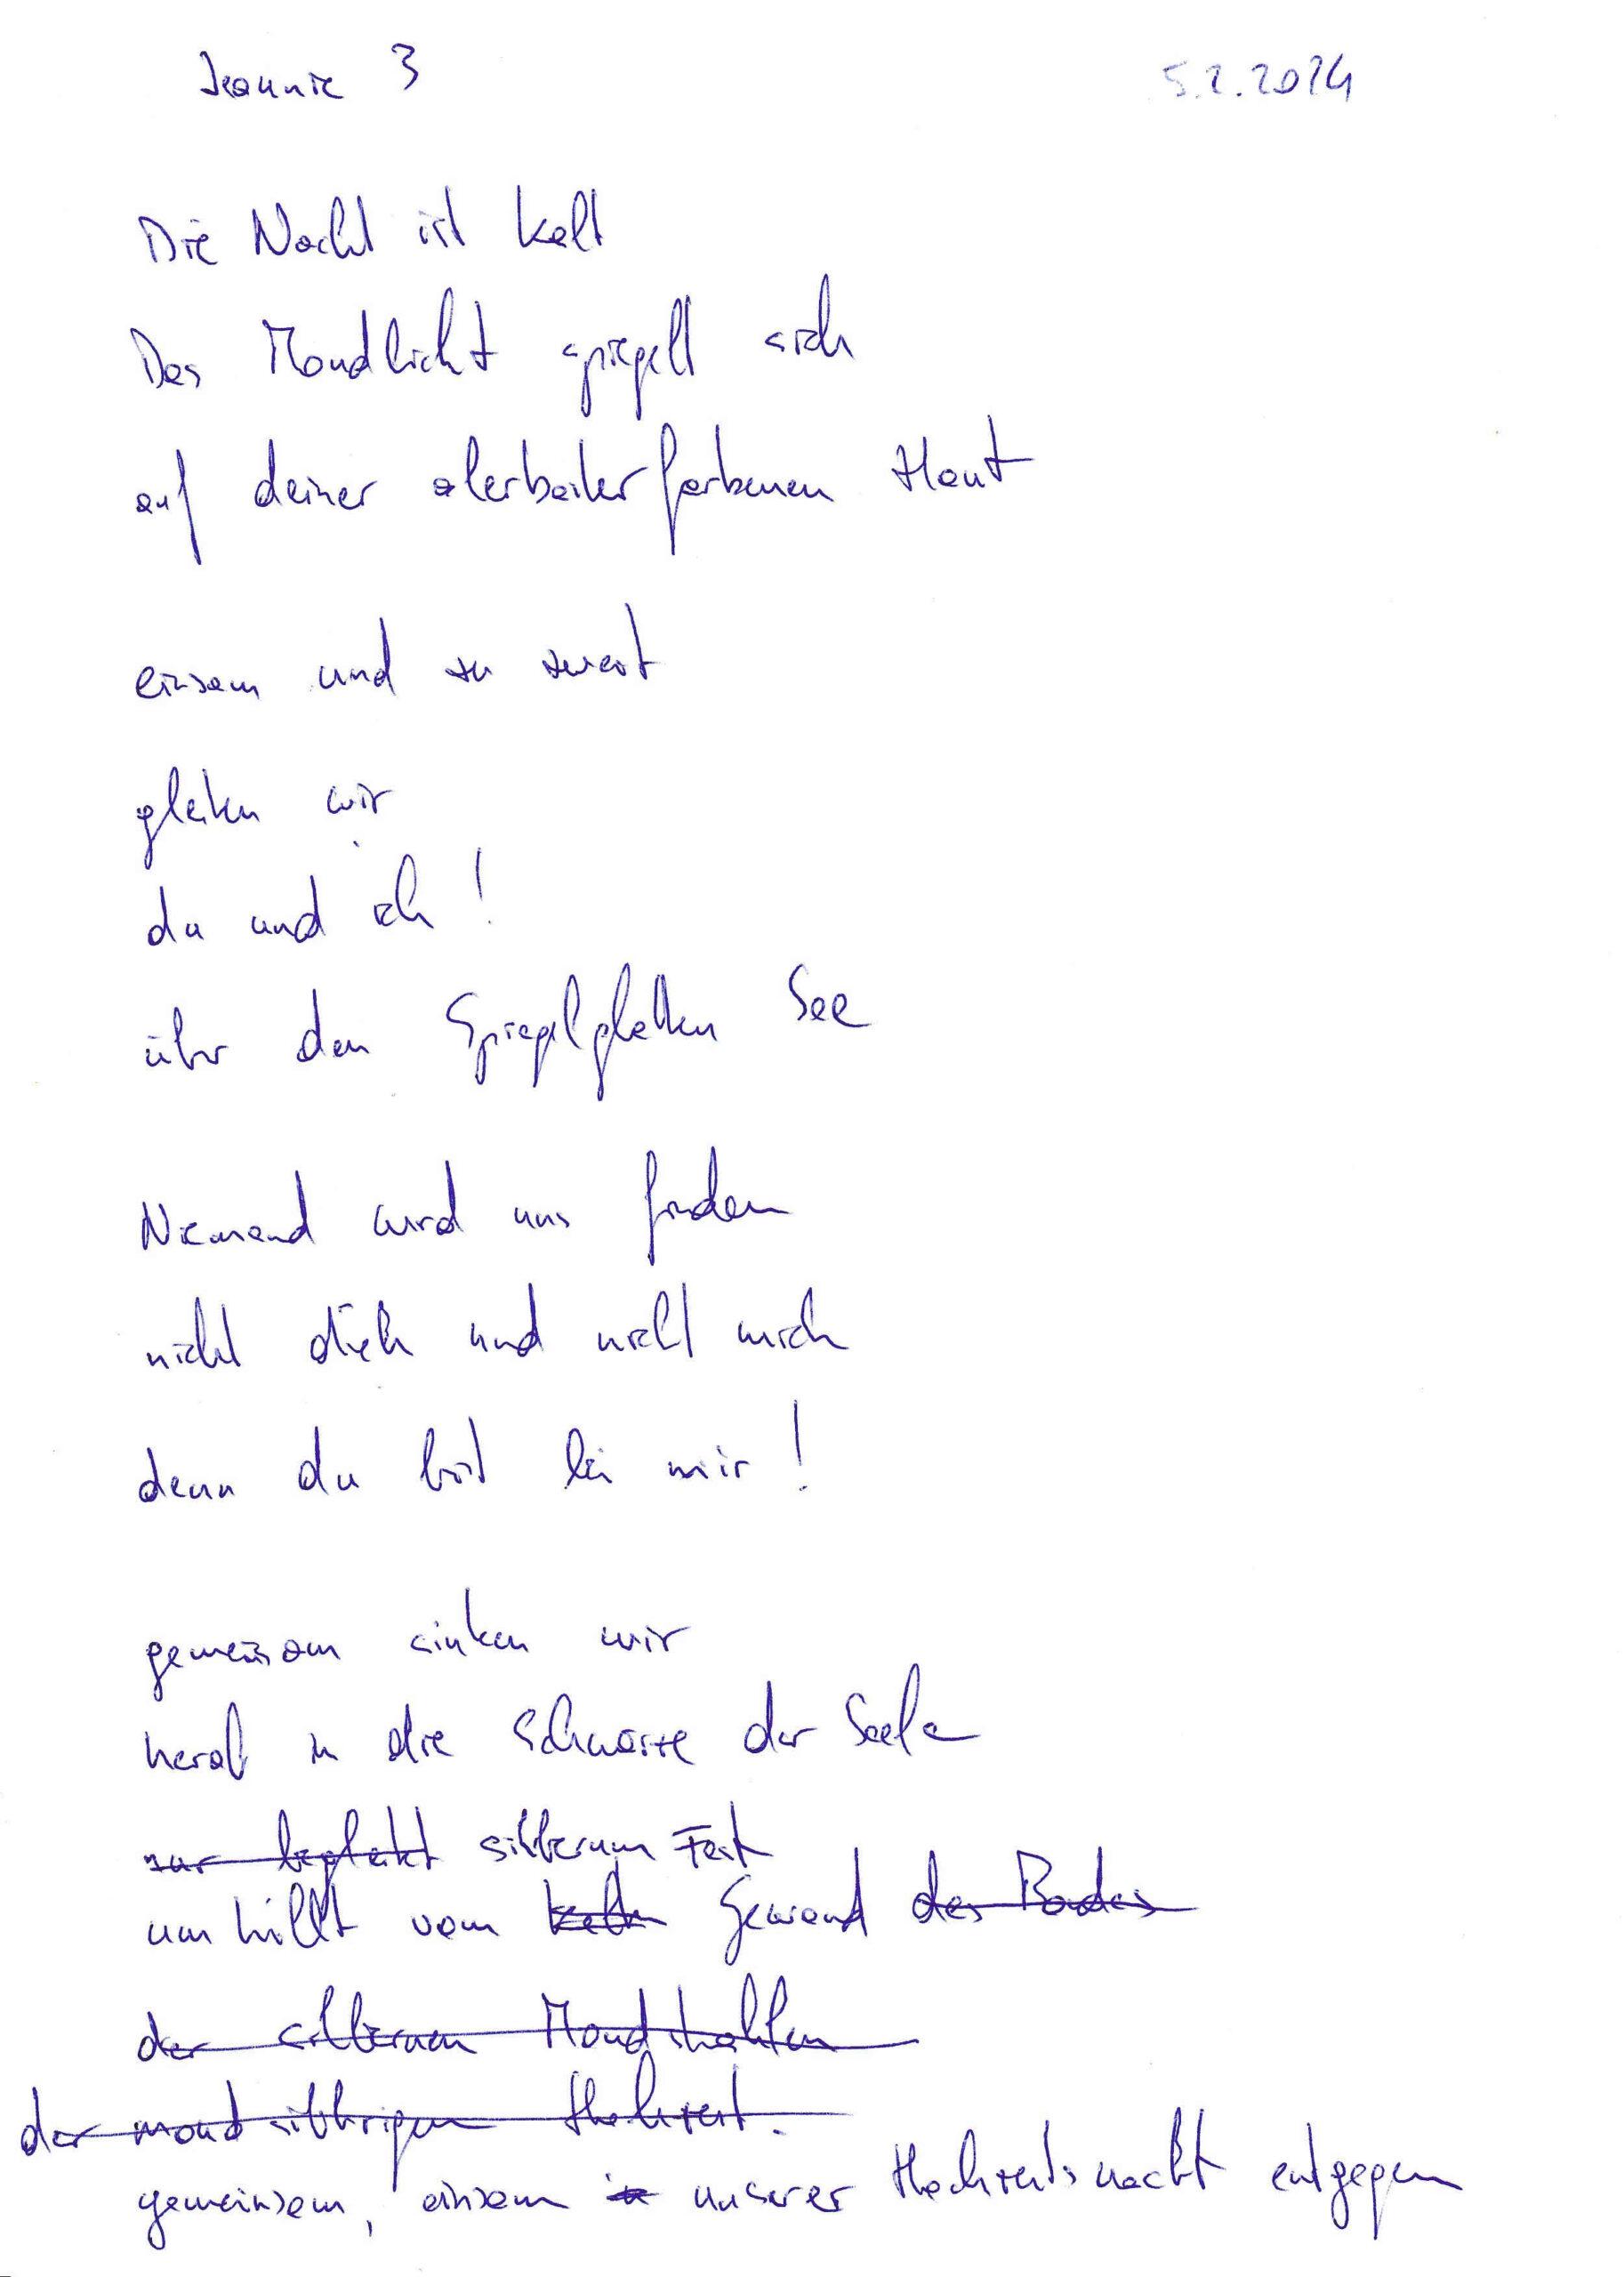 Jeannie 3 5.2.2014
Die Nacht ist kalt
Das Mondlicht spiegelt sich
auf deiner alerbasterfarbenen Haut
einsam und zu zweit
gleiten wir
du und ich!
über den Spiegelglatten See
Niemand wird uns finden
nicht dich und nicht mich
denn du bist bei mir!
gemeinsam sinken wir
herab in die Schwärze der Seele
zur begleitet silbernen Fest
umhüllt vom Gewand des
der silbernen Mondstrahlen
der mondsilbrigen Hochzeit.
gemeinsam, einsam in unserer Hochzeitsnacht entgegen